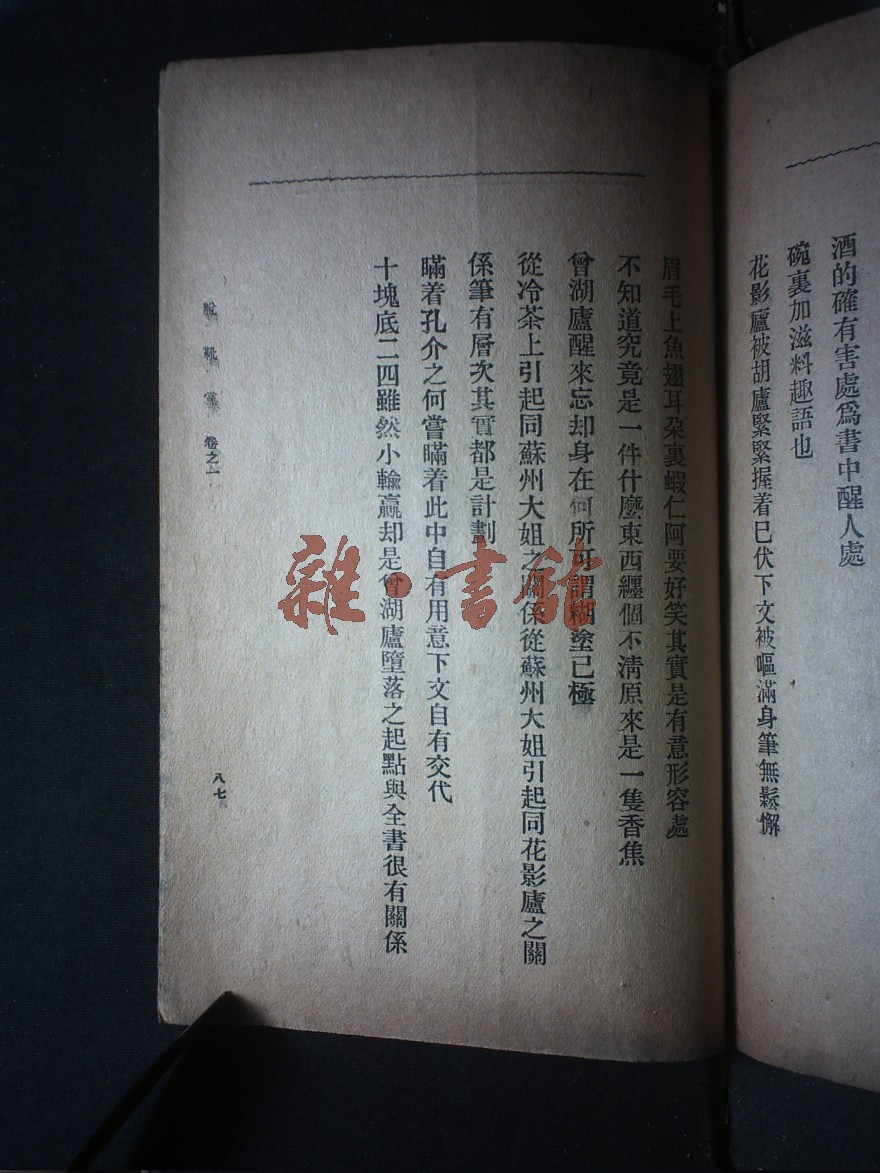 酒的確有害處爲書中醒人處
碗裏加滋料趣語也
花影廬被胡廬緊緊握着已伏下文被嘔滿身筆無鬆懈
眉毛上魚翅耳朶裏蝦仁阿要好笑其實是有意形容處
不知道究竟是一件什麼東西纏個不淸原來是一隻香焦
曾湖廬醒來忘却身在何所可謂糊塗已極
從冷茶上引起同蘇州大姐之關係從蘇州大姐引起同花影廬之關
係筆有層次其實都是計劃
瞞着孔介之何嘗瞞着此中自有用意下文自有交代
十塊底二四雖然小輸贏却是曾湖廬墮落之起點與全書很有關係
脫靴黨 卷之一
八七
雜·書館